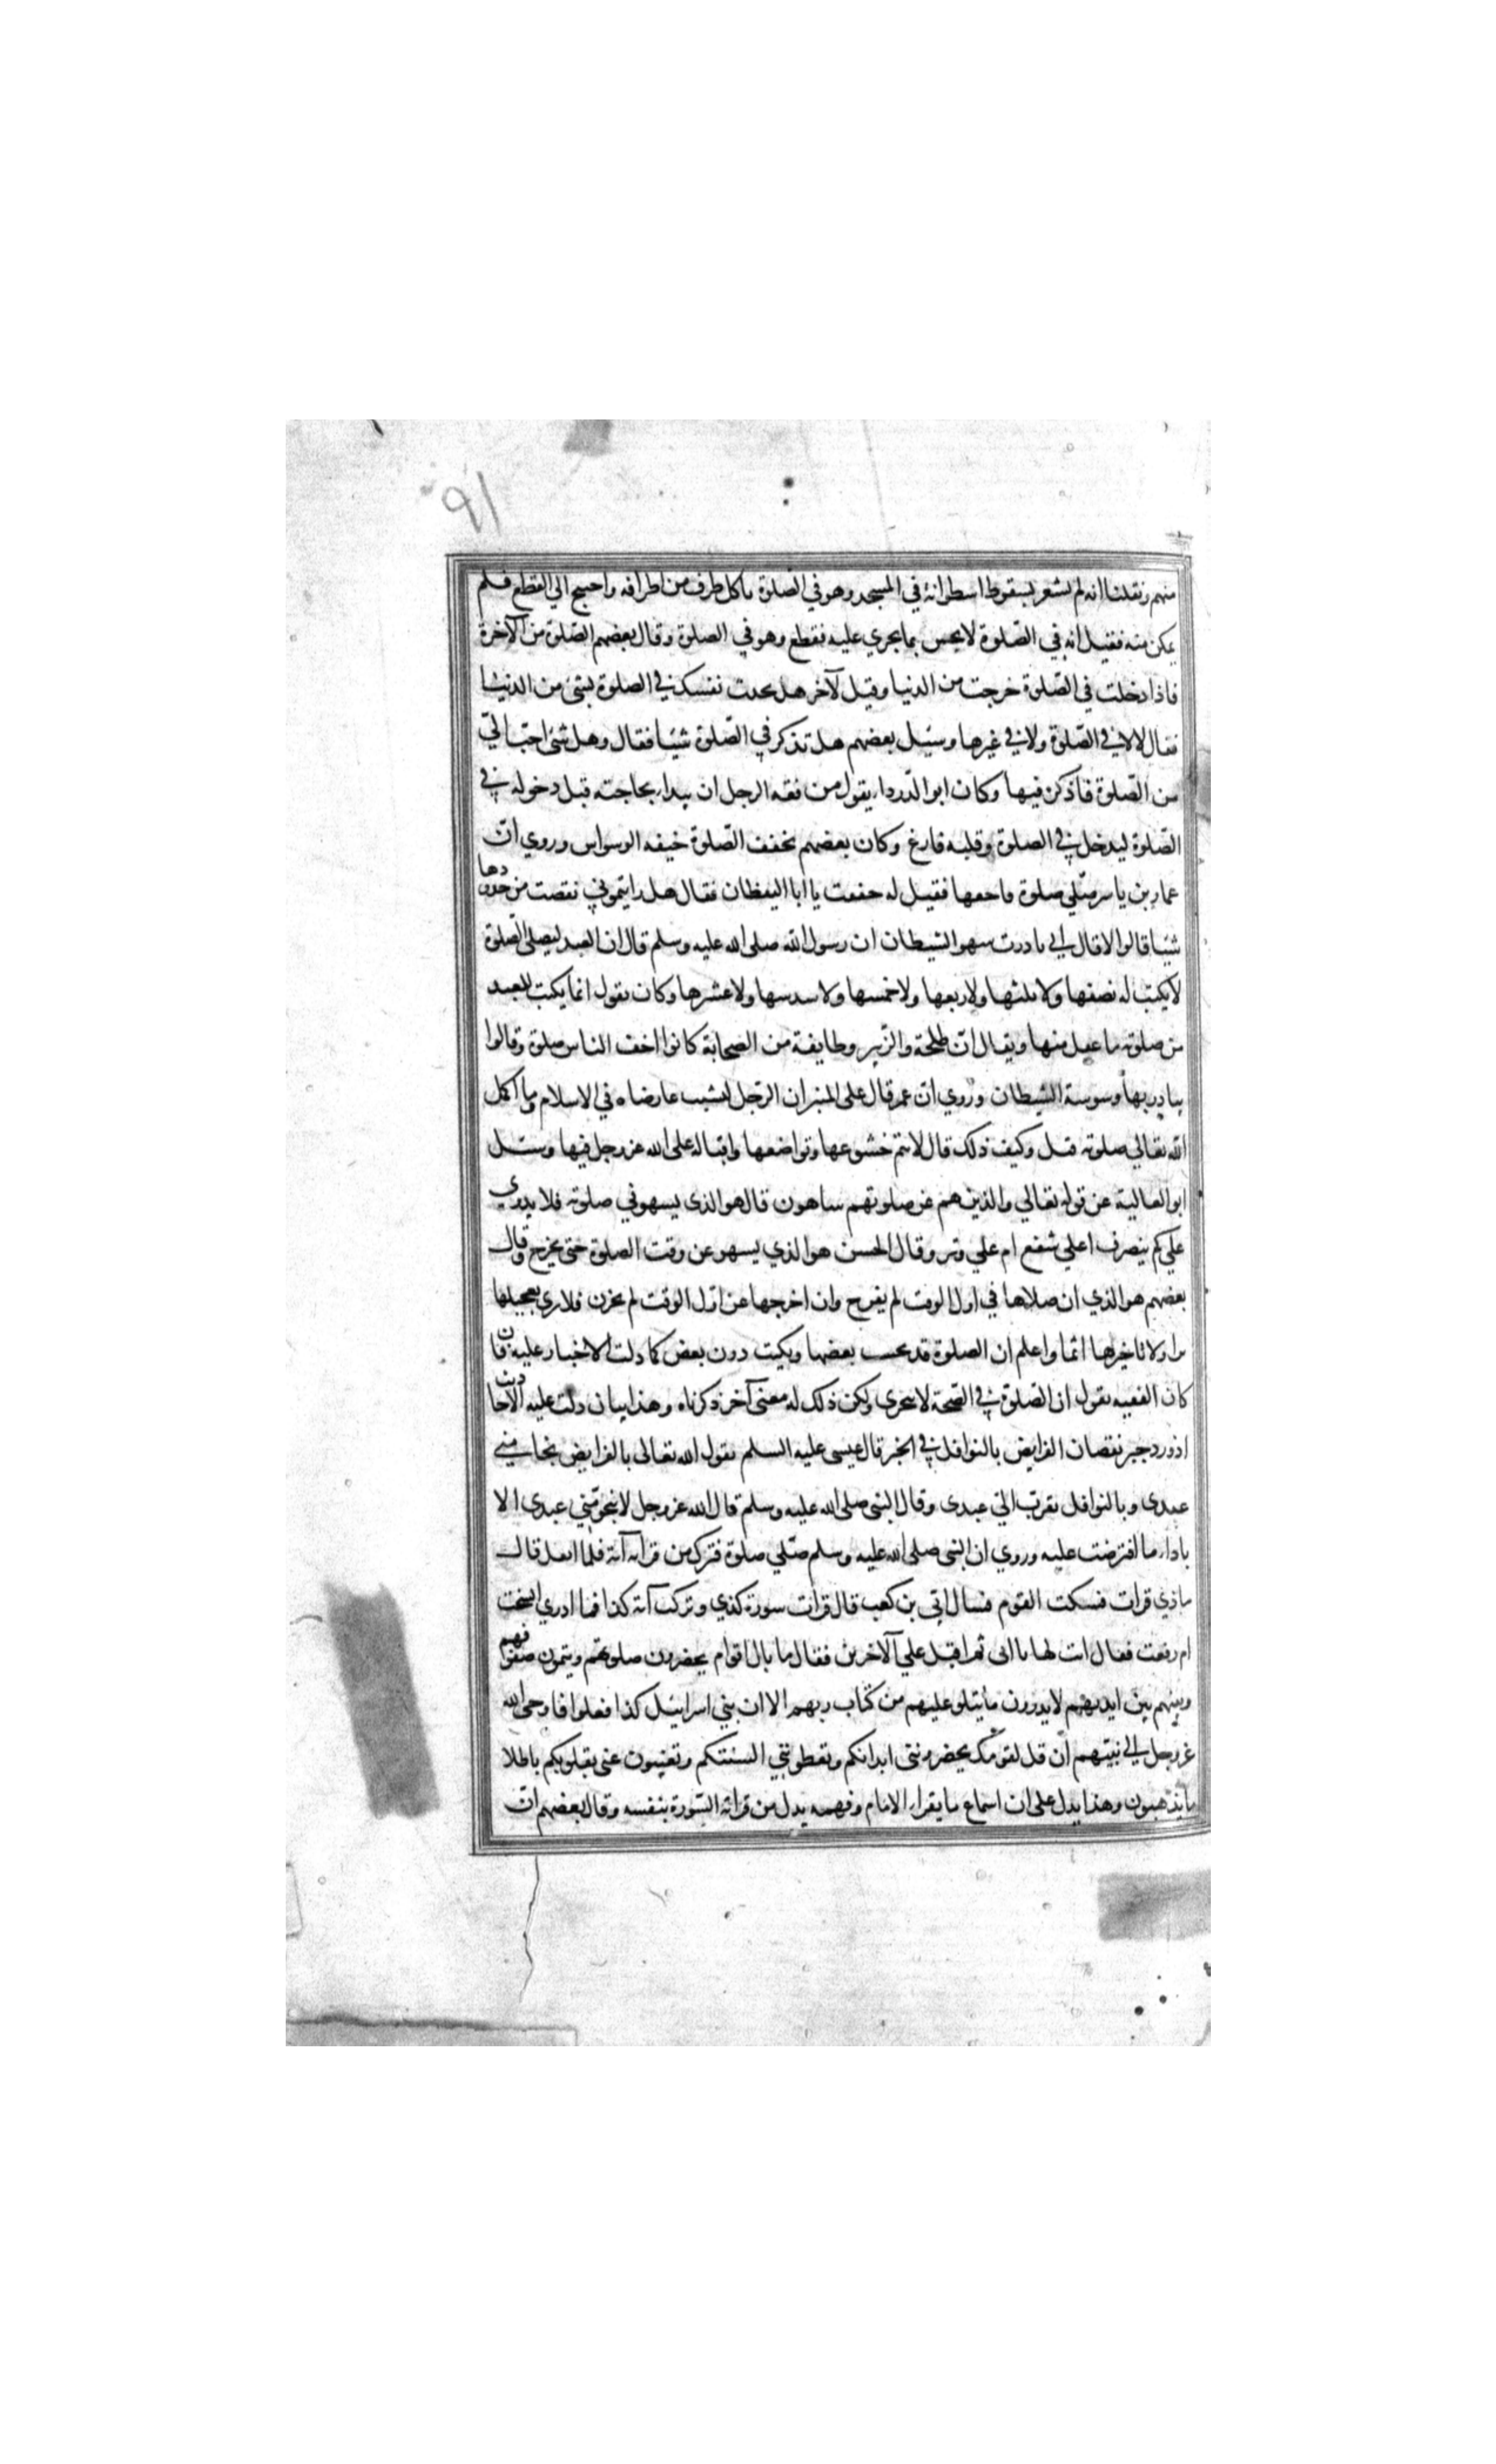 ٩١
منهم ونقلنا انه لم يشعر بسقوط اسطوانة في المسجد وهو في الصلوة تاكل طرف من اطرافه واحتيج الي القطع فلم
يمكن منه فقيل انه في الصّلوة لا يحس بما يجري عليه فقطع وهو في الصلوة وقال بعضهم الصّلوة من الآخرة
فاذا دخلت في الصّلوة خرجت من الدنيا وقيل لآخر هل تحدث نفسك في الصلوة بشئ من الدنيا
فقال لا لا في الصّلوة ولا في غيرها وسئيل بعضهم هل تذكر في الصّلوة شيئا فقال وهل شئ احبّ اليّ
من الصّلوة فاذكره فيها وكان ابو الدّرداء يقول من فقه الرجل ان يبداء بحاجته قبل دخوله في
الصّلوة ليدخل في الصلوة وقلبه فارغ وكان بعضهم يخفف الصّلوة خيفه الوسواس وروي انّ
عمار بن ياسر صلّي صلوة فاخفها فقيل له خففت يا ابا اليقظان فقال هل رايتموني نقصت من حدودها
شيئا قالوا لا قال اني بادرت سهو الشيطان ان رسول الله صلى الله عليه وسلم قال ان العبد ليصلى الصّلوة
لا يكتب له نصفها ولا ثلثها ولا ربعها ولا خمسها ولا سدسها ولا عشرها وكان يقول انما يكتب للعبد
من صلوته ما عقل منها ويقال انّ طلحة والزّبير وطايفة من الصحابة كانوا اخف الناس صلوة وقالوا
يبادر بها وسوسة الشيطان وروي انّ عمر قال على المنبر ان الرّجل ليشيب عارضاه في الاسلام وما اكمل
الله تعالي صلوته قيل وكيف ذلك قال لا يتم خشوعها وتواضعها واقباله على الله عز وجل فيها وسئل
ابو العالية عن قوله تعالي والذين هم عن صلوتهم ساهون قال هو الذى يسهو في صلوته فلا يدري
علي كم ينصرف اعلي شفع ام علي وتر وقال الحسن هو الذي يسهو عن وقت الصلوة حتى يخرج وقال
بعضهم هو الذي ان صلاها في اول الوقت لم يفرح وان اخرجها عن اوّل الوقت لم يحزن فلا يرى تعجيلها
برا ولا تاخيرها اثما واعلم ان الصلوة قد يحسب بعضها ويكتب دون بعض كما دلت الاخبار عليه فان
كان الفقيه يقول ان الصّلوة في الصّحة لا تتجزى ولكن ذلك له معنى آخر ذكرناه وهذا بيان دلت عليه الاحاديث
اذ ورد جبر نقصان الفرايض بالنوافل في الخبر قال عيسى عليه السلم يقول الله تعالى بالفرايض نجا مني
عبدى وبالنوافل تقرّب اليّ عبدى وقال النبى صلى الله عليه وسلم قال الله عز وجل لا ينجو منّي عبدى الا
باداء ما افترضت عليه وروي ان النبى صلى الله عليه وسلم صلّي صلوة فترك من قراته آية فلما انفتل قال
ماذي قرات فسكت القوم فسال ابّي بن كعب قال قرات سورة كذي وتركت آية كذا فما ادري انسخت
ام رفعت فقال انت لها يا ابى ثم اقبل علي الآخرين فقال ما بال اقوام يحضرون صلوتهم ويتمون صفوفهم
ونبيهم بين ايديهم لا يدرون ما يتلو عليهم من كتاب ربهم الا ان بني اسرائيل كذا فعلوا فاوحى الله
عز وجل الى نبيهم ان قل لقومك يحضرونني ابدانكم وتعطونني السنتكم وتغيبون عني بقلوبكم باطلا
ما يذهبون وهذا يدل على ان استماع ما يقراء الامام وفهمه بدل من قراة السّورة بنفسه وقال بعضهم انّ